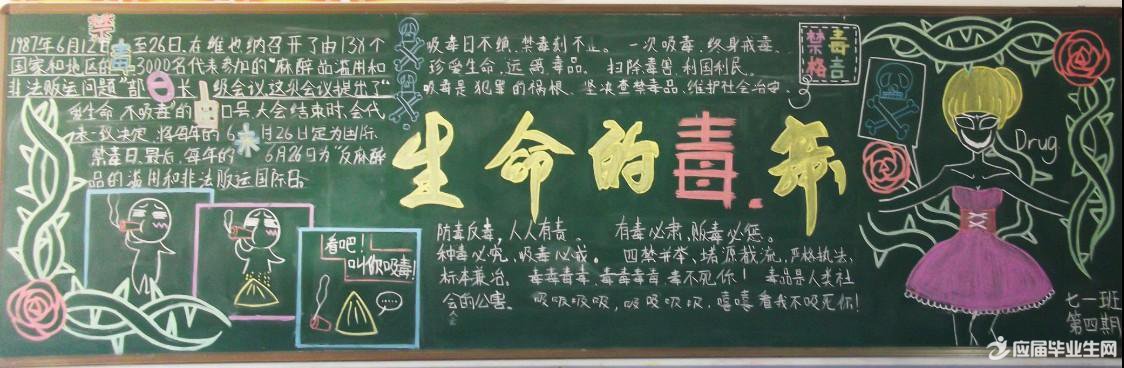 禁毒
1987年6月12日至26日,在维也纳召开了由138个
国家和地区的3000名代表参加的“麻醉品滥用和
非法贩运问题”部长级会议这次会议提出了“
爱生命,不吸毒”的口号,大会结束时,会代
表一致决定,将每年的6月26日定为国际
禁毒日,最后,每年的6月26日为“反麻醉
品的滥用和非法贩运国际日。
看吧!
叫你吸毒!
吸毒日不绝,禁毒刻不止。 一次吸毒,终身戒毒,
珍爱生命,远离毒品。 扫除毒害,利国利民。
吸毒是犯罪的祸根,坚决查禁毒品,维护社会治安。
禁毒
格言
生命的毒
防毒反毒,人人有责。 有毒必肃,贩毒必惩。
种毒必究,吸毒必戒。 四禁并举、堵源截流,严格执法,
标本兼治。 毒毒毒毒,毒毒毒毒,毒不死你! 毒品是人类社
会的公害。 吸吸吸吸,吸吸吸吸,嘻嘻看我不吸死你!
Drug.
七一班
第四期
应届毕业生网